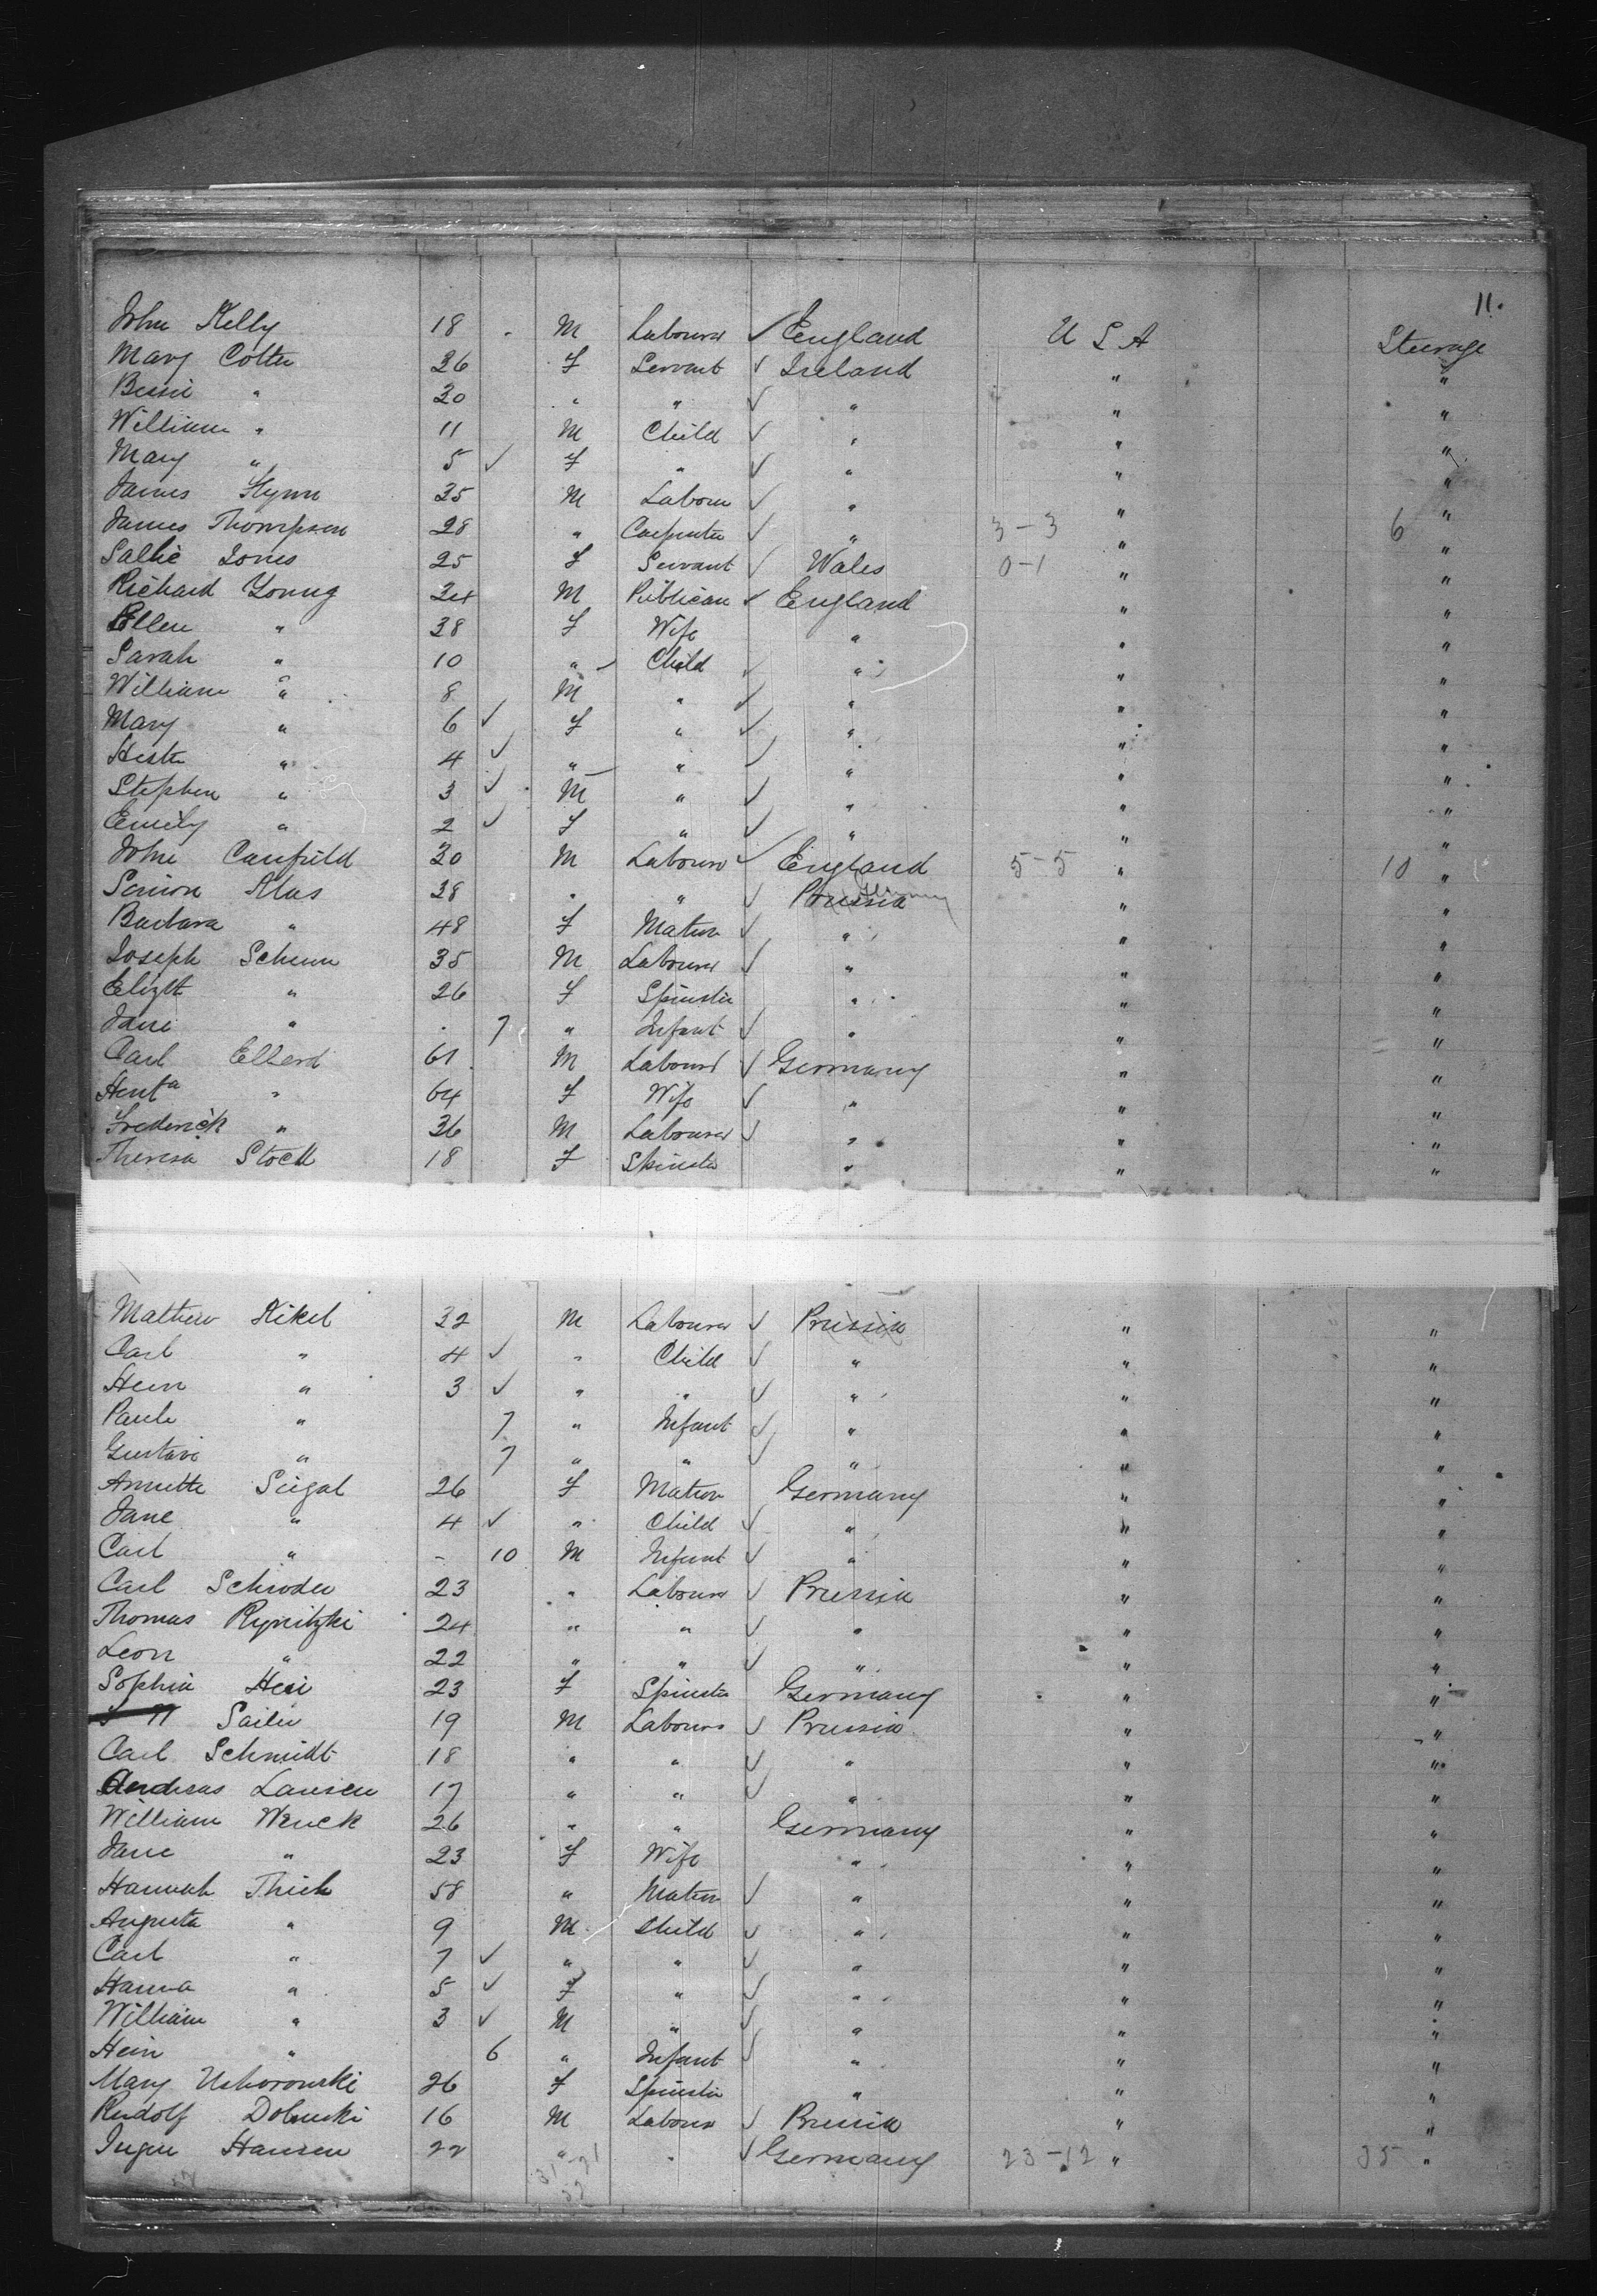 11.
John Kelly 18 M Labourer ✓ England U S A Steerage
Mary Cotter 26 F Servant ✓ Ireland " "
Bessie " 20 " " ✓ " " "
William " 11 M Child ✓ " " "
Mary " 5 ✓ F " ✓ " " "
James Flynn 35 M Labour ✓ " " "
James Thompson 28 " Carpenter ✓ " 3-3 " 6 "
Sallie Jones 25 F Servant ✓ Wales 0-1 " "
Richard Young 34 M Publican ✓ England " "
Ellen " 38 F Wife " " "
Sarah " 10 " Child ✓ " " "
William " 8 M " ✓ " " "
Mary " 6 ✓ F " ✓ " " "
Hester " 4 ✓ " " ✓ " " "
Stephen " 3 ✓ M " ✓ " " "
Emily " 2 ✓ F " ✓ " " "
John Canfield 30 M Labourer ✓ England 5-5 " 10 "
38 " " ✓ Prussia " "
Barbara " 48 F Matron ✓ " " "
Joseph Schunn 35 M Labourer ✓ " " "
Elizth " 26 F Spinster " " "
Jane " - 7 " Infant ✓ " " "
Carl Ellerd 61 M Labourer ✓ Germany " "
Henta " 64 F Wife ✓ " " "
Frederick " 36 M Labourer ✓ " " "
Theresa Stock 18 F Spinster " " "
Mathew Kikel 32 M Labourer ✓ Prussia " "
Carl " 4 ✓ " Child ✓ " " "
Hein " 3 ✓ " " ✓ " " "
Paule " 7 " Infant ✓ " " "
Gustave " 7 " " ✓ " " "
Annette Seigal 26 F Matron Germany " "
Jane " 4 ✓ " Child ✓ " " "
Carl " - 10 M Infant ✓ " " "
Carl Schroder 23 " Labourer ✓ Prussia " "
Thomas Rynitzki 24 " " ✓ " " "
Leon " 22 " " ✓ " " "
Sophia 23 F Spinster Germany " "
Sailer 19 M Labourer ✓ Prussia " "
Carl Schmidt 18 " " ✓ " " "
Andreas Lausen 17 " " ✓ " " "
William Wenck 26 " " Germany " "
Jane " 23 F Wife " " "
Hannah Thiele 58 " Matron ✓ " " "
Augusta " 9 M Child ✓ " " "
Carl " 7 ✓ " " ✓ " " "
Hanna " 5 ✓ F " ✓ " " "
William " 3 ✓ M " ✓ " " "
Hein " 6 " Infant ✓ " " "
Mary 26 F Spinster " " "
Rudolf Dolnuski 16 M Labour ✓ Prussia " "
Hansen 22 " " ✓ Germany 23-12 " 35 "